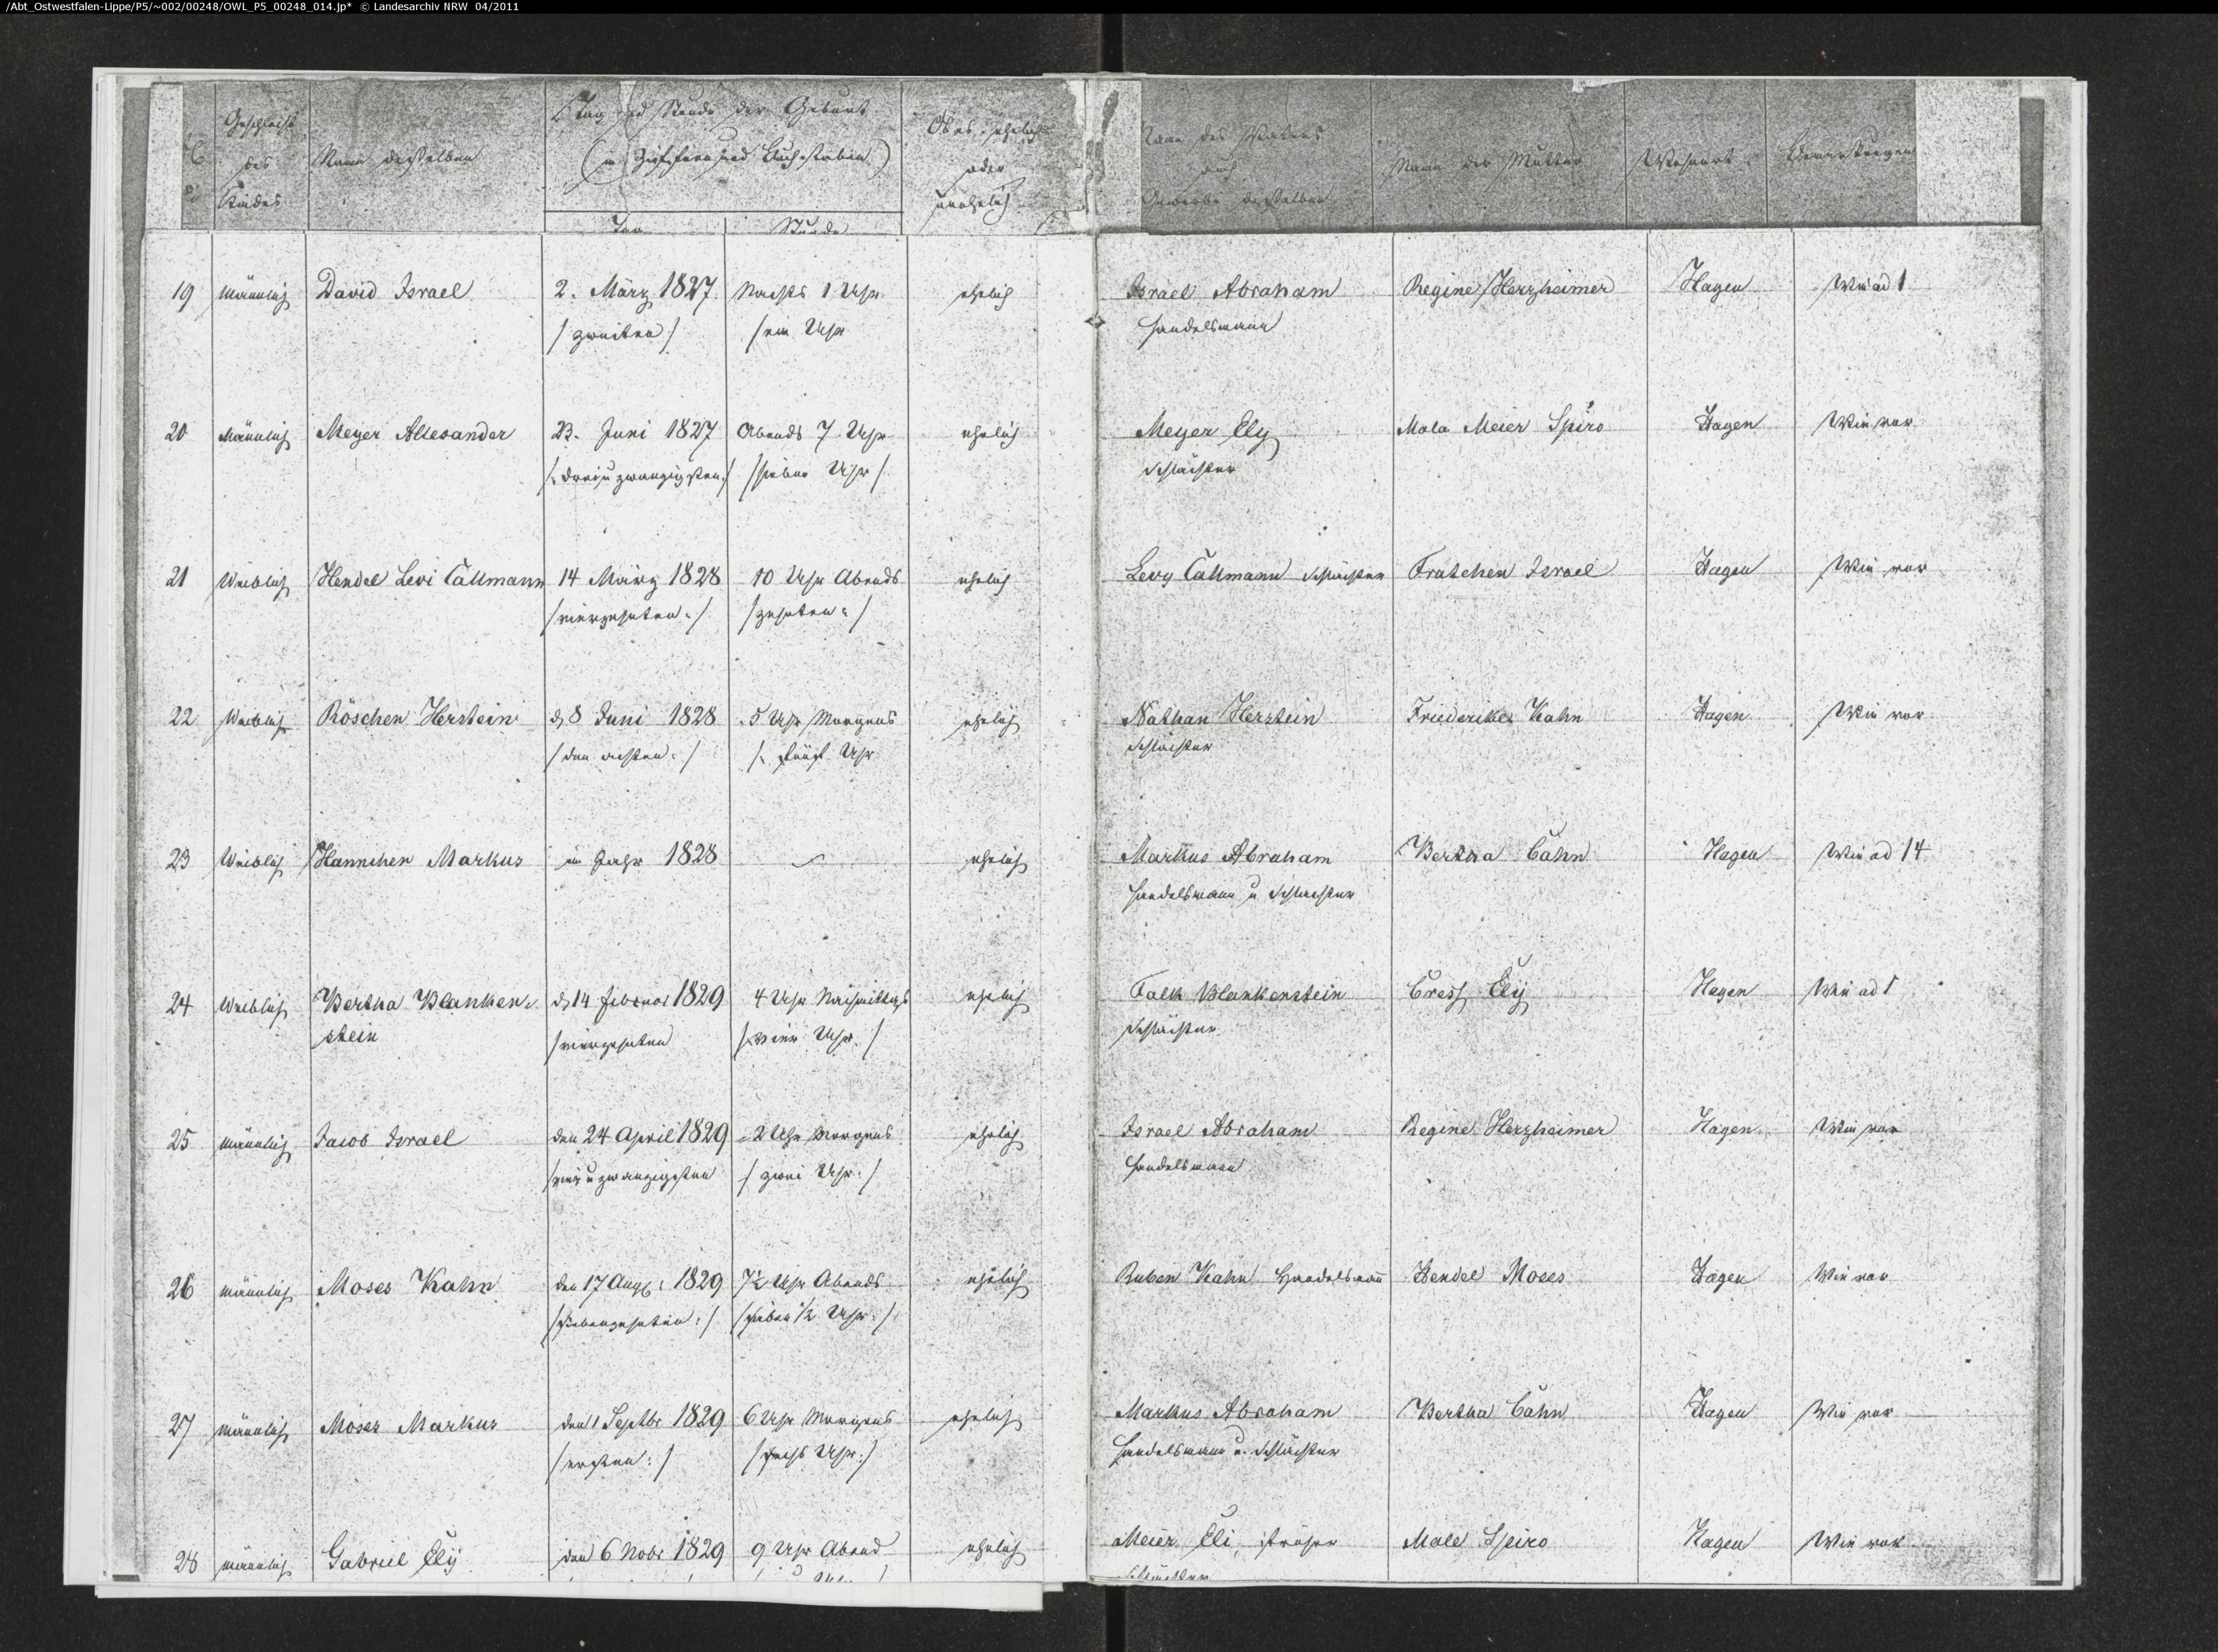 /Abt_Ostwestfalen-Lippe/P5/~002/00248/OWL_P5_00248_014.jp* © Landesarchiv NRW 04/2011
Geschlecht des Kindes
Name desselben
Tag und Stunde der Geburt
(in Ziffern und Buchstaben)
Tag Stunde
Ob es ehelich oder unehelich
Name des Vaters auch Gewerbe desselben
Name der Mutter
Wohnort
Bemerkungen
19 männlich David Israel 2. März 1827. Nachts 1 Uhr ehelich Israel Abraham Regine Herzheimer Hagen Wie ad 1
/zweiten/ /ein Uhr Handelsmann
20 Männlich Meyer Allexander 23. Juni 1827 Abends 7 Uhr ehelich Meyer Ely Mala Meier Spiro Hagen Wie vor
/: drei u zwanzigsten :/ /sieben Uhr/ Schlächter
21 Weiblich Hendel Levi Callmann 14 März 1828 10 Uhr Abends ehelich Levy Callmann Schlächter Fratchen Israel Hagen Wie vor
/vierzehnten :/ /zehnten :/
22 Weiblich Röschen Herstein d 8 Juni 1828 5 Uhr Morgens ehelich Nathan Herstein Friederike Kahn Hagen Wie vor
/den achten :/ /: fünf Uhr Schlächter
23 Weiblich Hannchen Markus im Jahr 1828 — ehelich Markus Abraham Bertha Cahn Hagen Wie ad 14
Handelsmann u Schlachter
24 Weiblich Bertha Blanken- d 14 Februar 1829 4 Uhr Nachmittags ehelich Falk Blankenstein Cress Ely Hagen Wie ad 1
stein /vierzehnten /: vier Uhr. / Schlächter
25 männlich Jacob Israel den 24 April 1829 2 Uhr Morgens ehelich Israel Abraham Regine Herzheimer Hagen Wie vor
/vier u zwanzigsten / zwei Uhr :/ Handelsmann
26 männlich Moses Kahn den 17 Augs : 1829 7½ Uhr Abends ehelich Ruben Kahn Handelsmañ Hendel Moses Hagen Wie vor
/siebenzehnten :/ /sieben 1/2 Uhr :/
27 männlich Moses Markus den 1 Septbr 1829 6 Uhr Morgens ehelich Markus Abraham Bertha Cahn Hagen Wie vor
/ersten :/ /sechs Uhr :/ Handelsmann u. Schlächter
28 männlich Gabriel Elÿ den 6 Nobr 1829 9 Uhr Abend ehelich Meier Eli, früher Male Spiro Hagen Wie vor
Schlächter